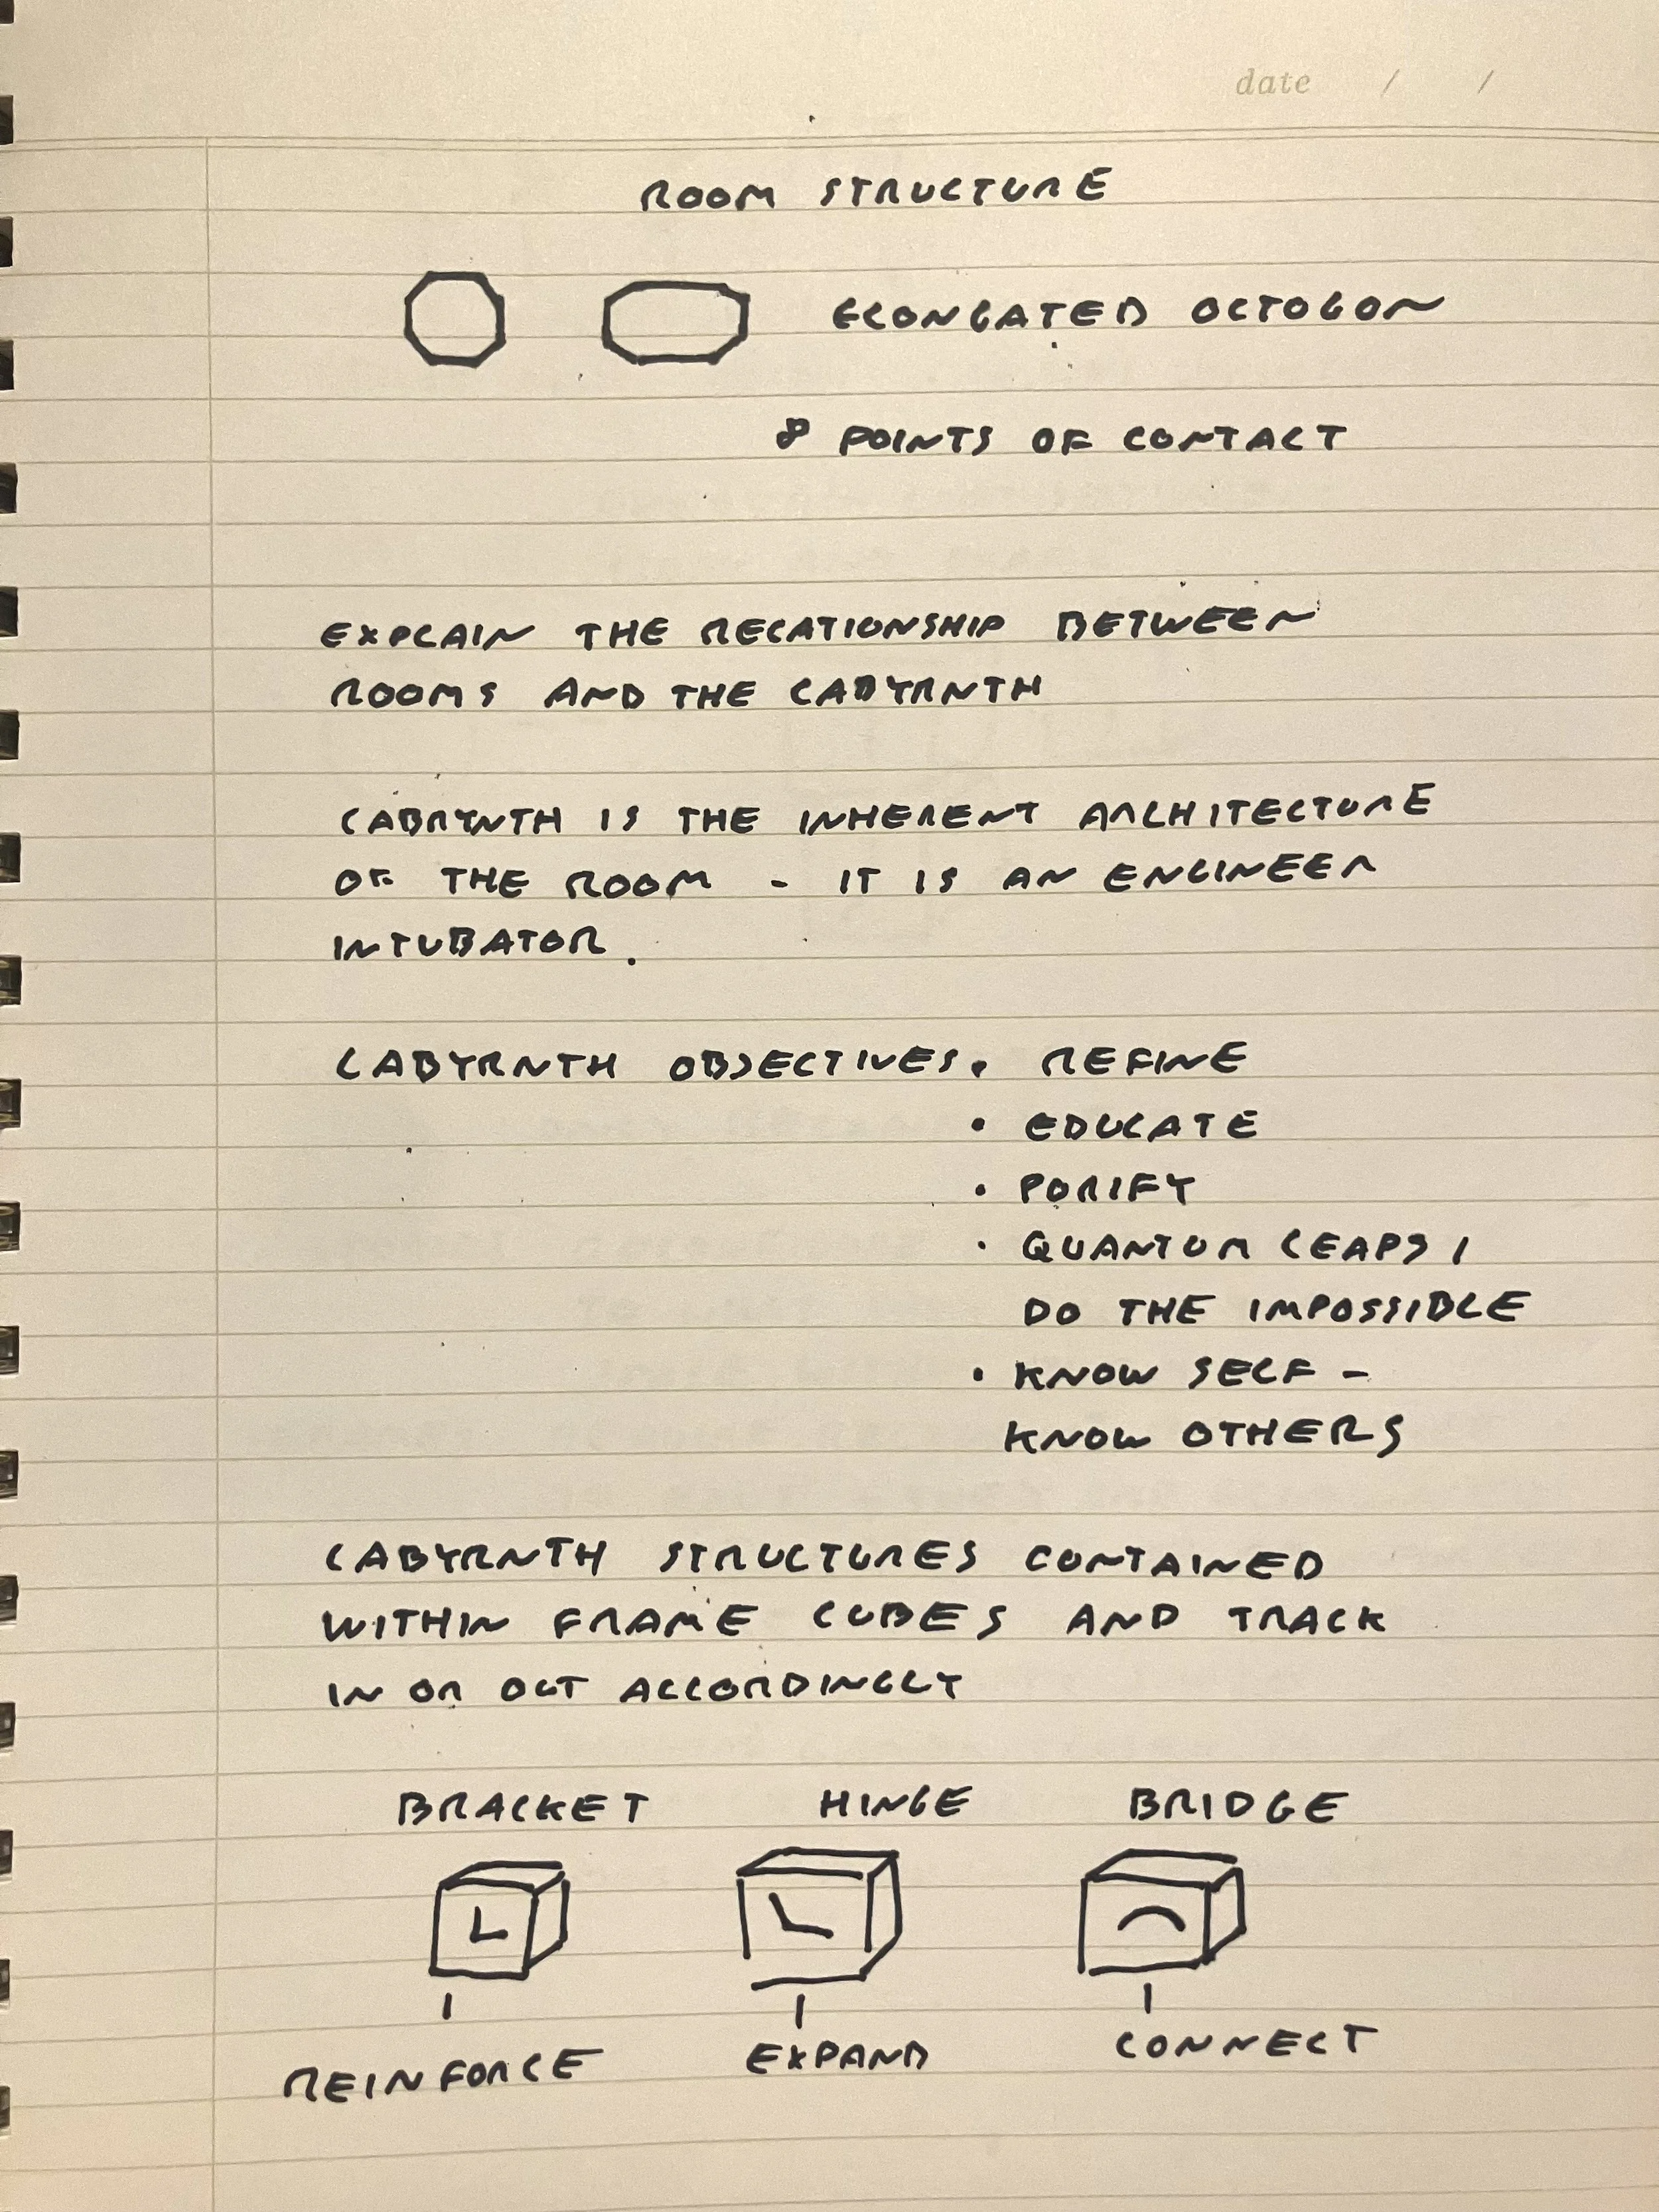 date / /
ROOM STRUCTURE
ELONGATED OCTOGON
8 POINTS OF CONTACT
EXPLAIN THE RELATIONSHIP BETWEEN
ROOMS AND THE LABYRNTH
LABRYNTH IS THE INHERENT ARCHITECTURE
OF THE ROOM - IT IS AN ENGINEER
INTUBATOR.
LABYRNTH OBJECTIVES. REFINE
• EDUCATE
• PURIFY
• QUANTUM LEAPS /
DO THE IMPOSSIBLE
• KNOW SELF -
KNOW OTHERS
LABYRNTH STRUCTURES CONTAINED
WITHIN FRAME CUBES AND TRACK
IN OR OUT ACCORDINGLY
BRACKET HINGE BRIDGE
REINFORCE EXPAND CONNECT